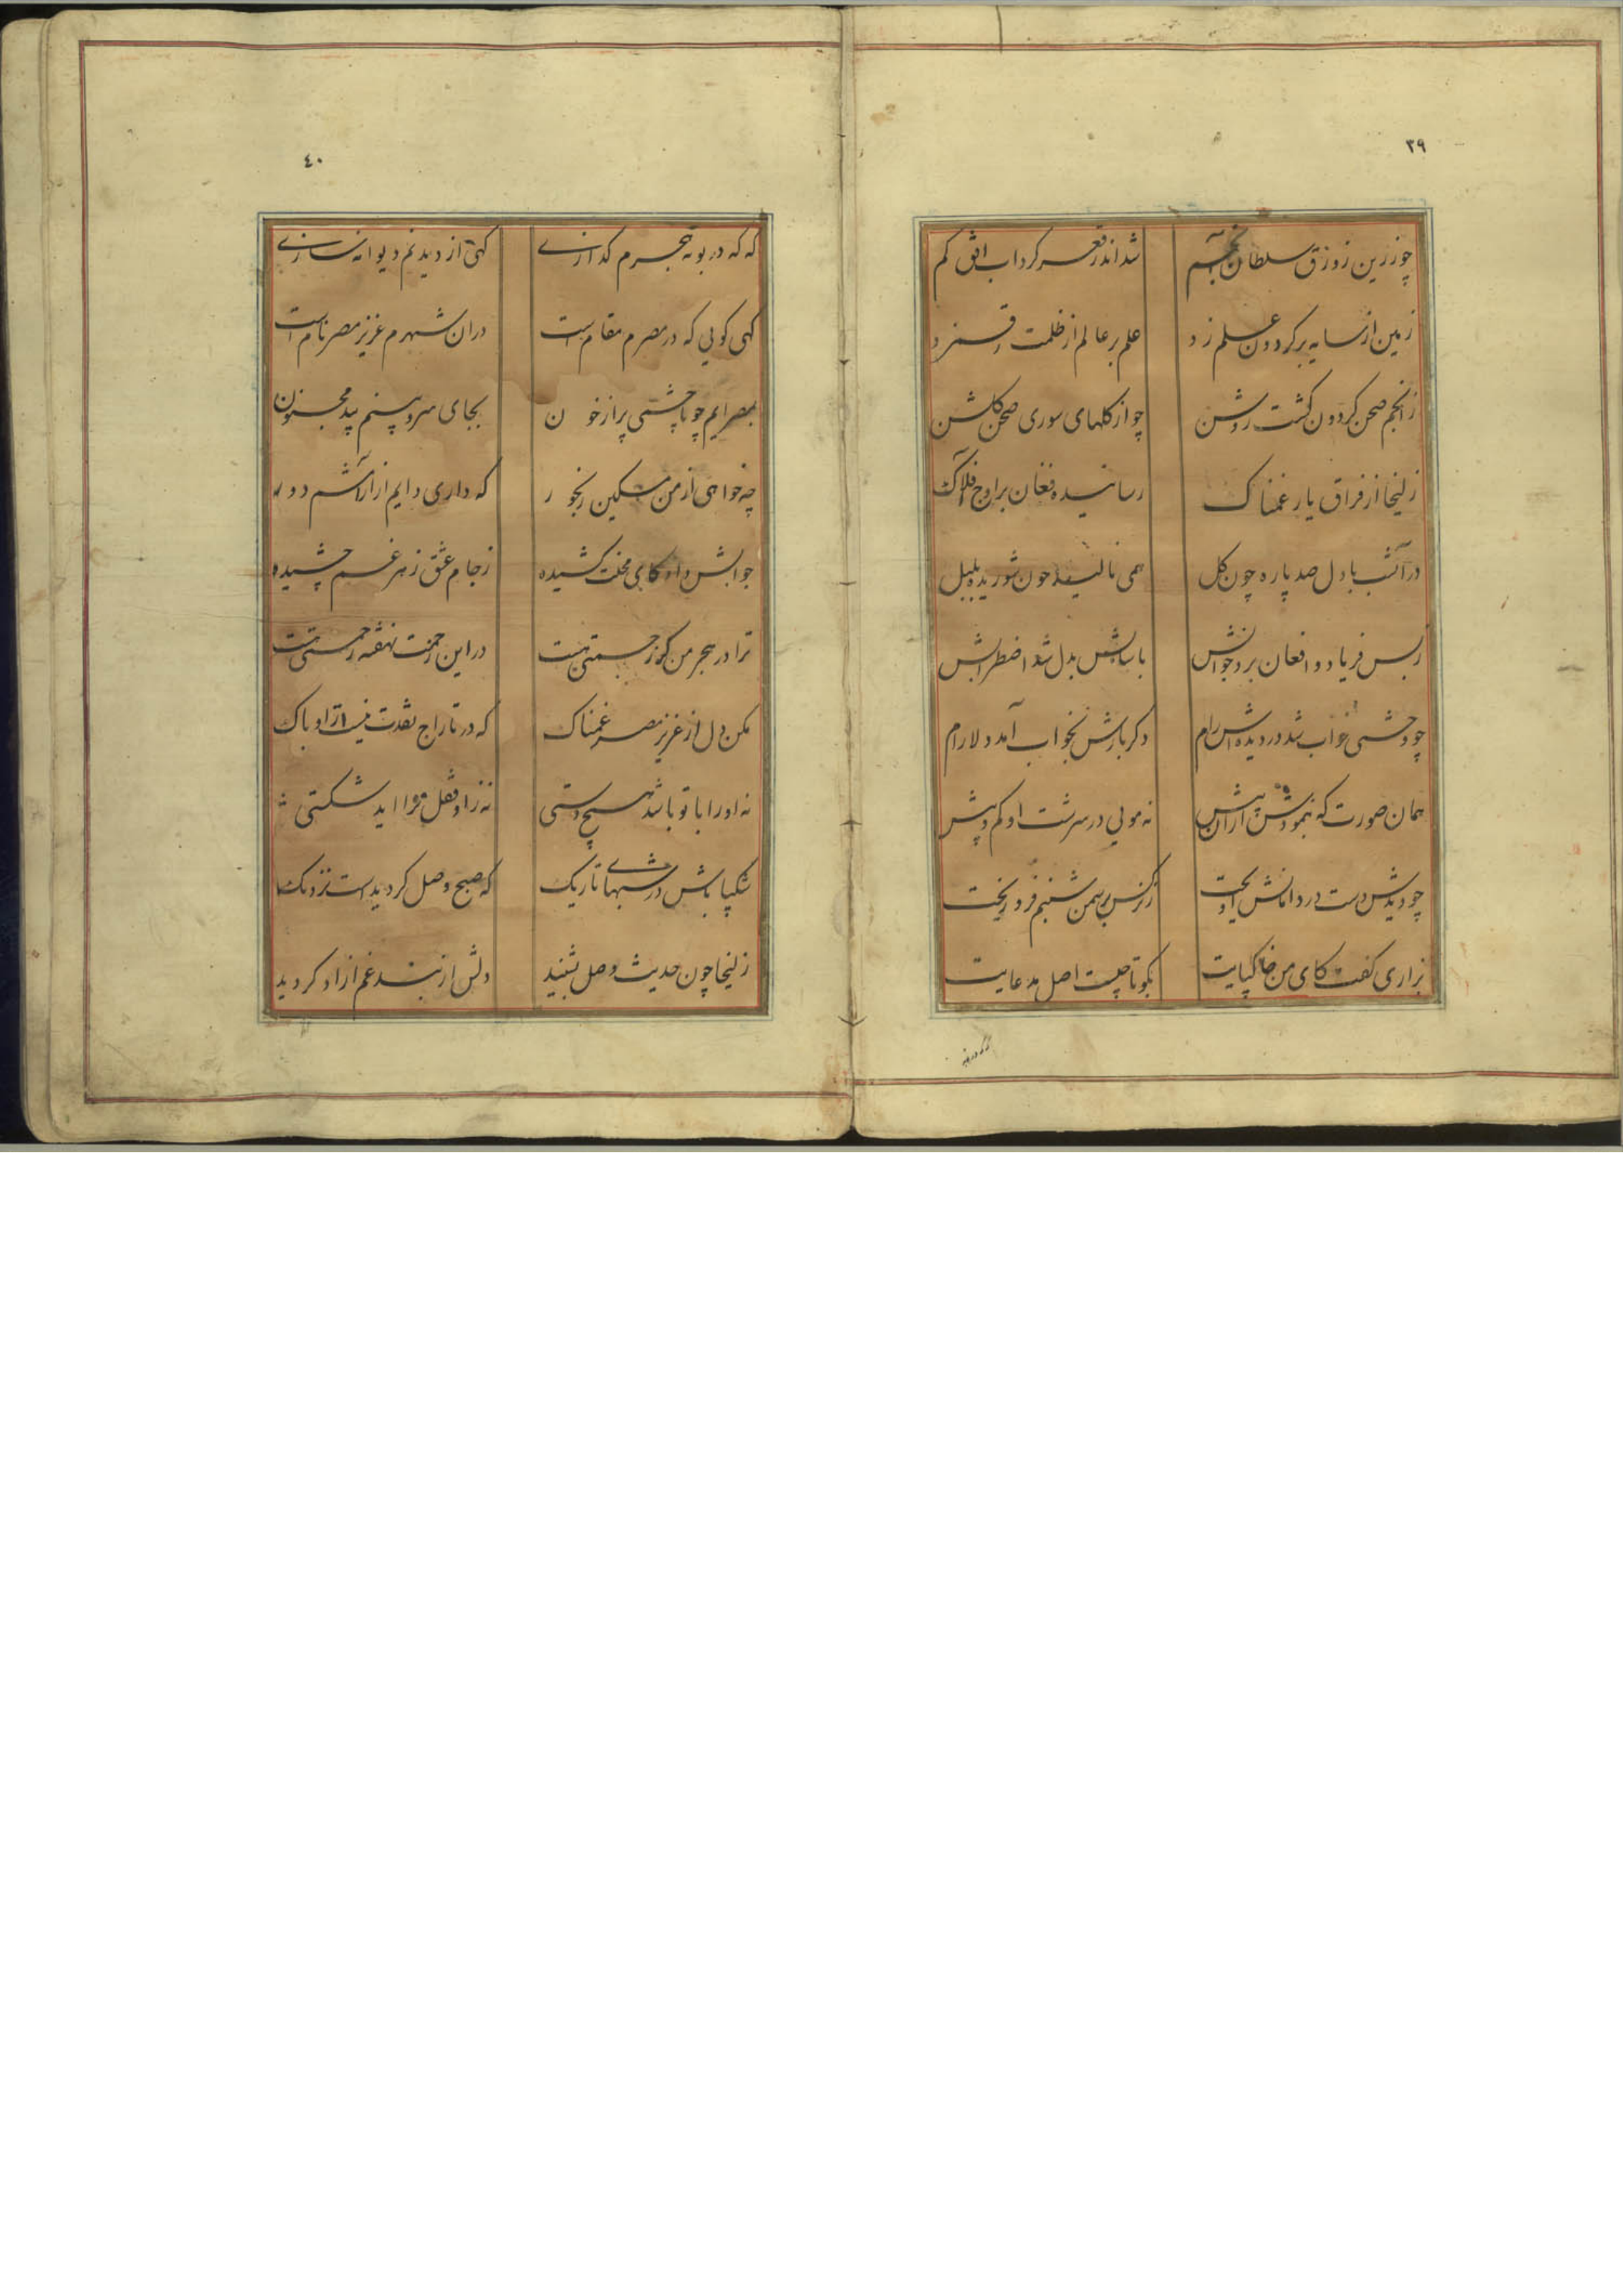 ۳۹
چو زرین زورق سلطان انجم شد اندر قعر کرداب افق کم
زمین از سایه بر کردون علم زد علم بر عالم از ظلمت رقم زد
ز انجم صحن کردون کشت روشن چو از کلهای سوری صحن کلشن
زلیخا از فراق یار غمناک رسانیده فغان بر اوج افلاک
در آنشب با دل صد پاره چون کل همی نالید چون شوریده بلبل
ز بس فریاد و افغان برد خوابش باسایش بدل شد اضطرابش
چو وحشی خواب شد در دیده اش رام دکر بارش بخواب آمد دلارام
همان صورت که بنمودش از ان پیش نه مویی در سرشت او کم و بیش
چو دیدش دست در دامانش آویخت ز نرکس بر سمن شبنم فرو ریخت
بزاری کفت کای من خاکپایت بکو تا چیست اصل مدعایت
۴۰
که که در بوته هجرم کدازی کهی از دیدنم دیوانه سازی
کهی کویی که در مصرم مقام است دران شهرم عزیز مصر نام است
بمصر ایم چو با چشمی پر از خون بجای سرو بینم بید مجنون
چه خواهی از من مسکین رنجور که داری دایم از ارامشم دور
جوابش داد کای محنت کشیده ز جام عشق زهر غم چشیده
ترا در هجر من کر زحمتی هست در این زحمت نهفته رحمتی هست
مکن دل از عزیز مصر غمناک که در تاراج نقدت نیست ازو باک
نه او را با تو باشد هیچ دستی نه زاو قفل ترا اید شکستی
شکیبا باش در شبهای تاریک که صبح وصل کردیدست نزدیک
زلیخا چون حدیث وصل بشنید دلش از بند غم ازاد کردید